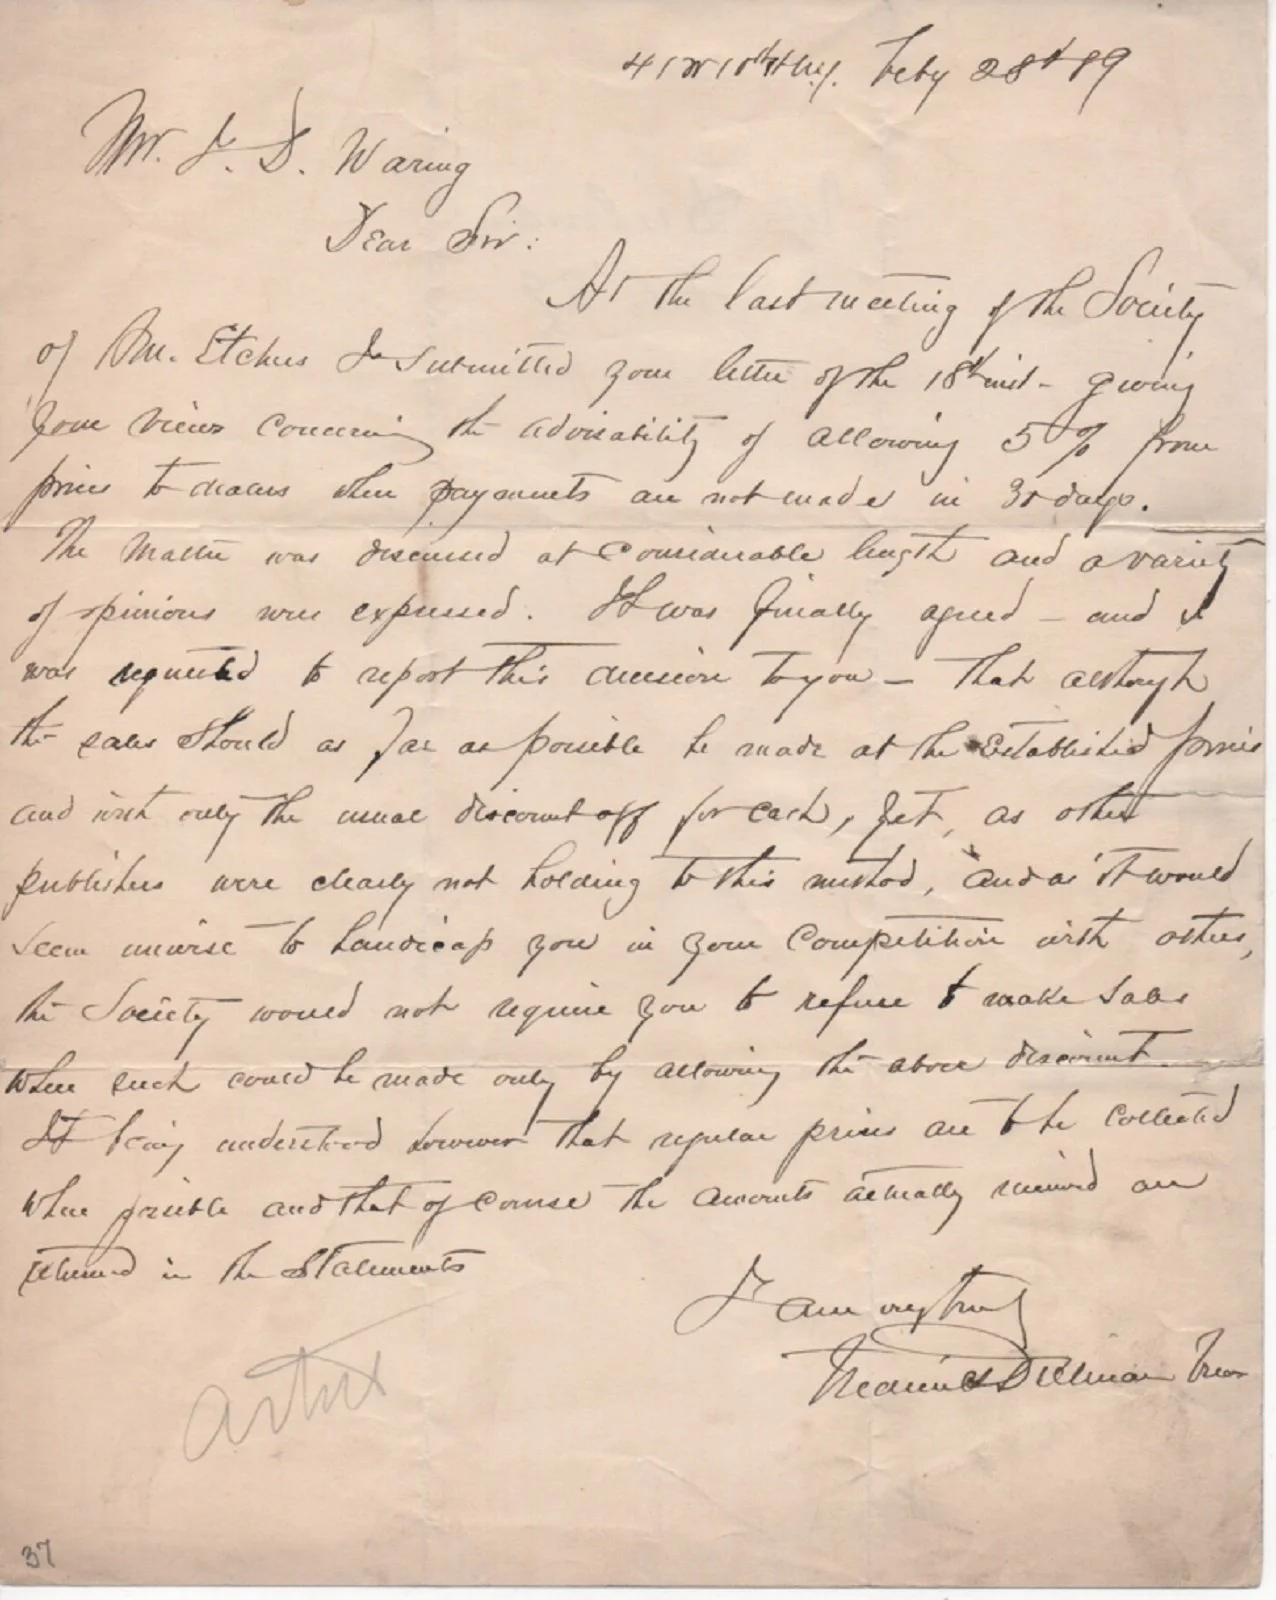 41 W 10th St N.Y. Feby 28th 89
Mr. J. D. Waring
Dear Sir:
At the last meeting of the Society
of Am. Etchers I submitted your letter of the 18th inst - giving
your views concerning the advisability of allowing 5% from
prices to dealers when payments are not made in 30 days.
The matter was discussed at considerable length and a variety
of opinions were expressed. It was finally agreed - and I
was requested to report this decision to you - that although
the sales should as far as possible be made at the established prices
and with only the usual discount off for cash, yet, as other
publishers were clearly not holding to this method, and as it would
seem unwise to handicap you in your competition with others,
the Society would not require you to refuse to make sales
where such could be made only by allowing the above discount.
It being understood however that regular prices are to be collected
where possible and that of course the amounts actually received are
returned in the statements
I am very truly
Frederick Dielman Treas
artist
37